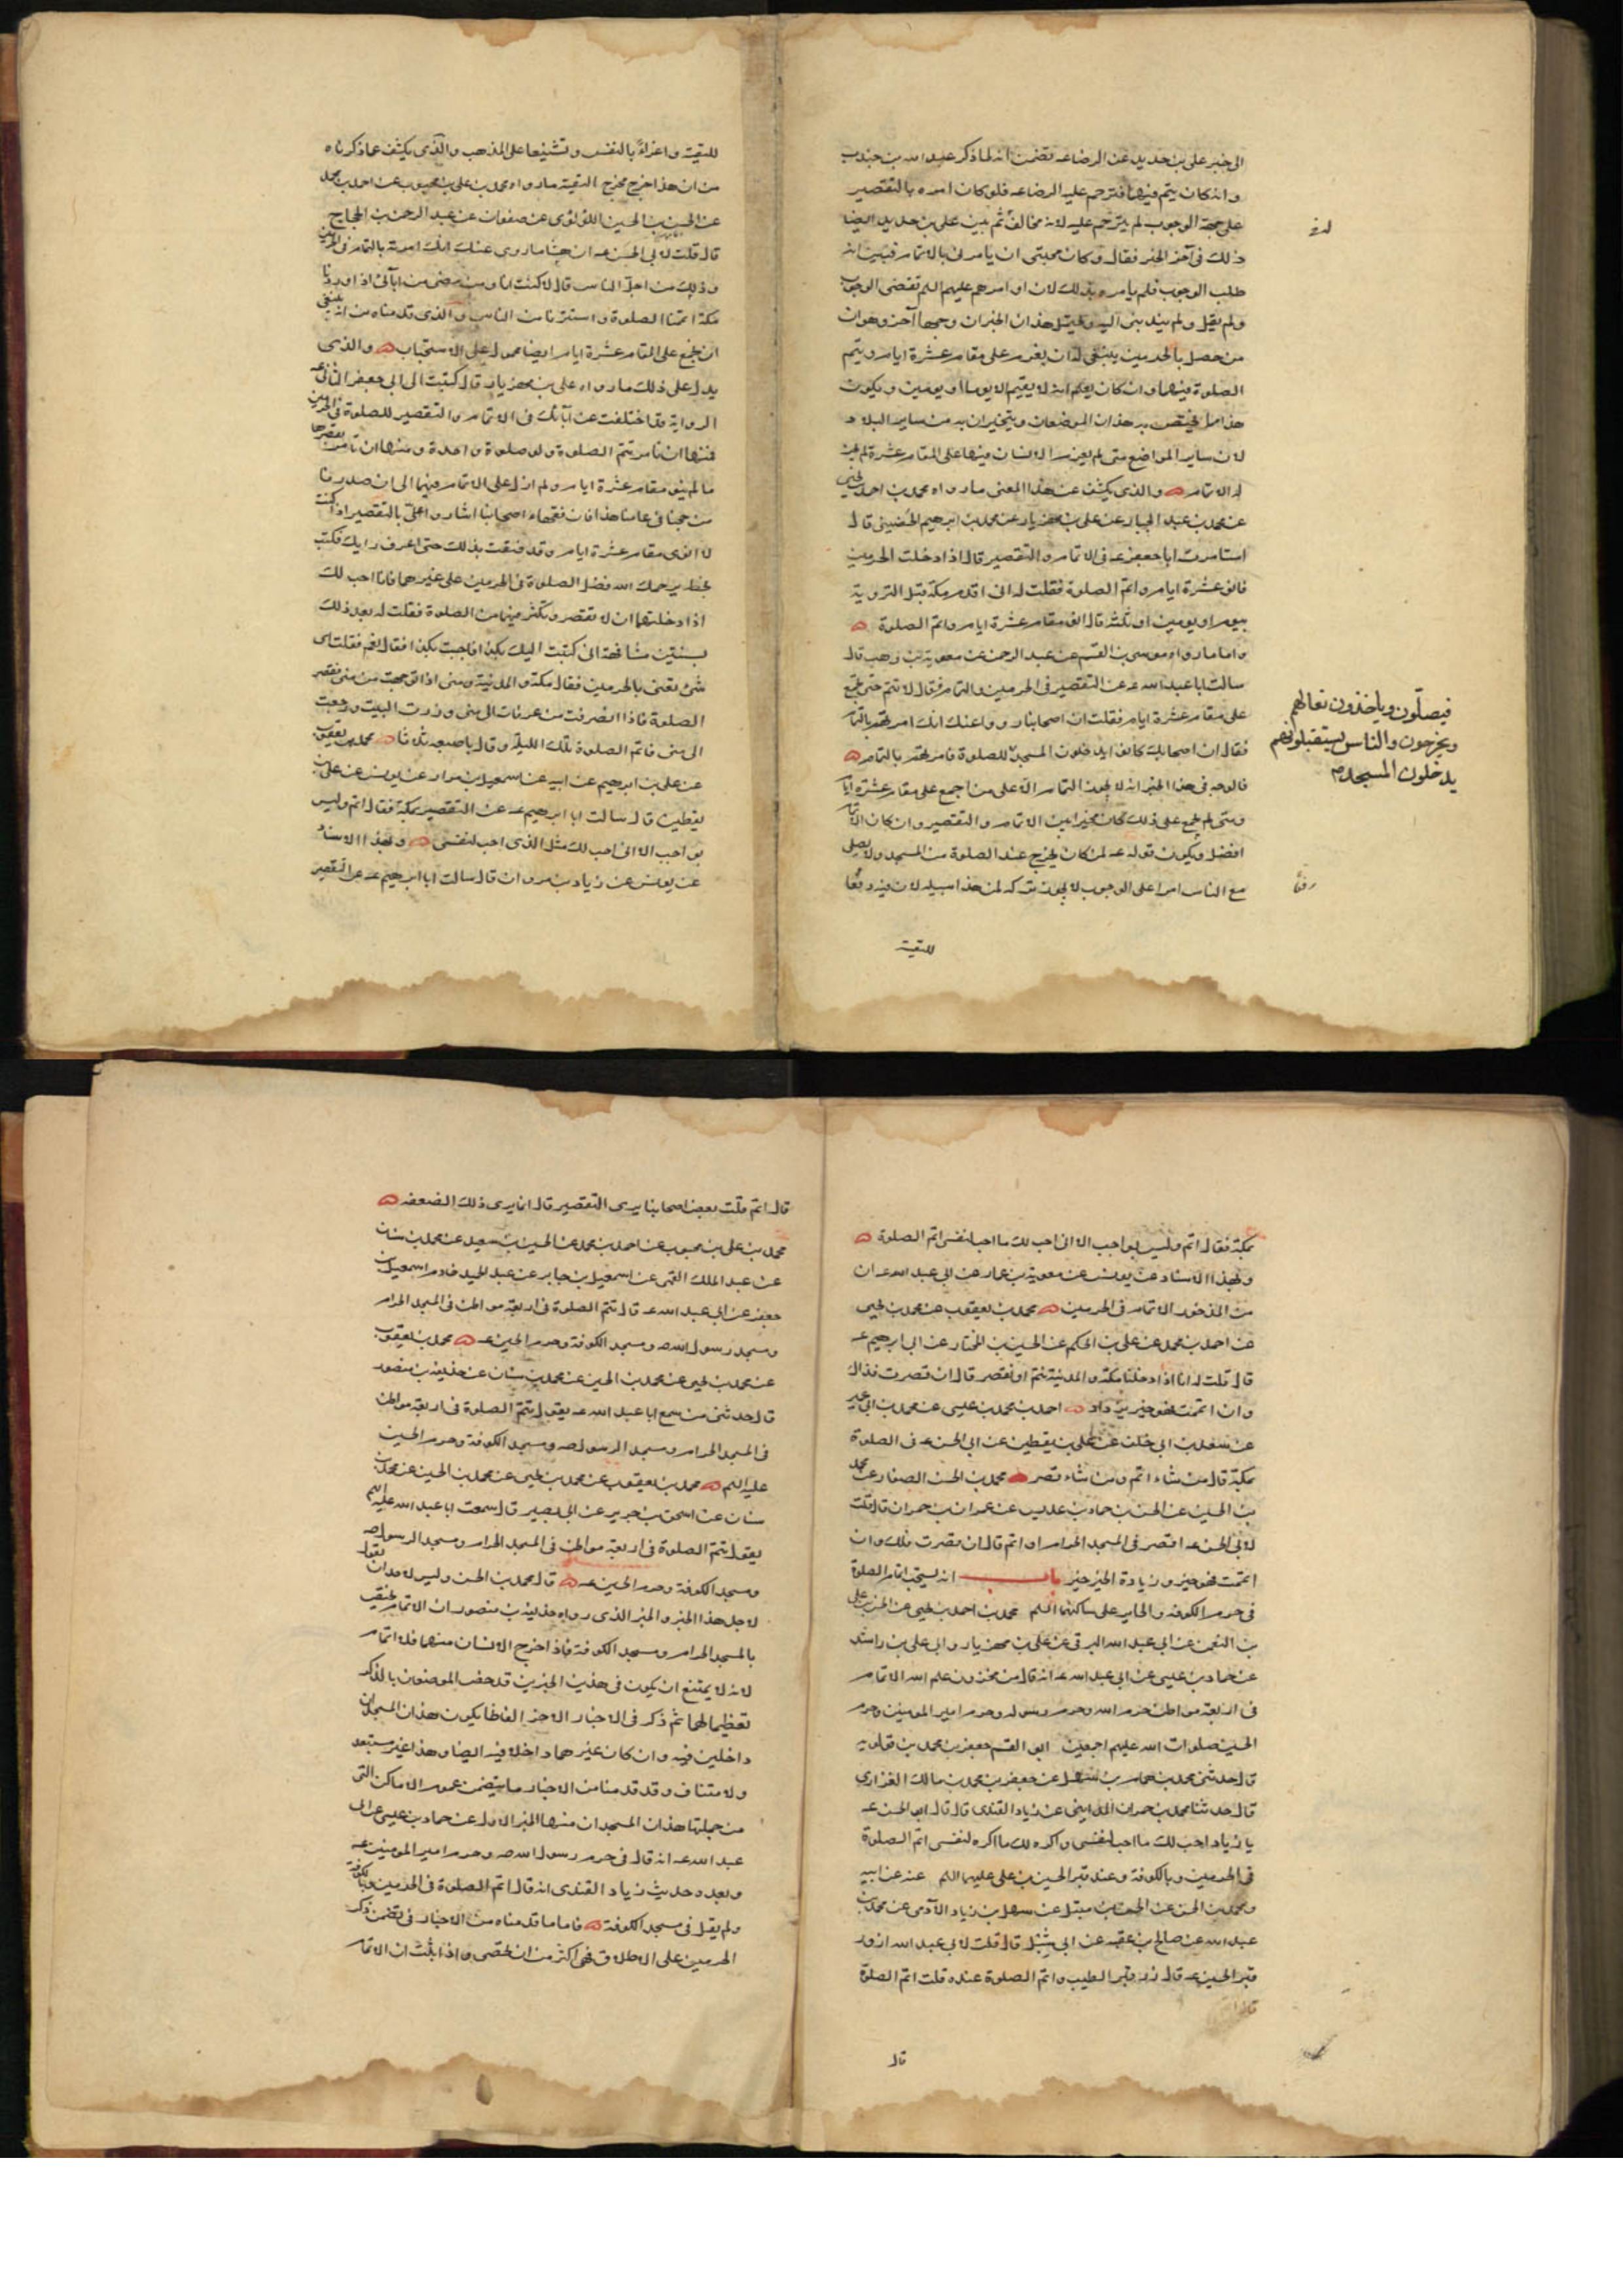 الى خبر على بن حديد عن الرضا عه تضمن انه لما ذكر عبد الله بن جندب
وانه كان يتم فيهما فترحم عليه الرضا عه فلو كان امره بالتقصير
على جهة الوجوب لم يترحم عليه لانه مخالف ثم بين على بن حديد ايضا
ذلك فى آخر الخبر فقال وكان محبتى ان يامرنى بالاتمام فتبين انه
طلب الوجوب فلم يامره بذلك لان اوامرهم عليهم السلم تقتضى الوجوب
ولم يقل ولم يندبنى اليه ويحتمل هذان الخبران وجها آخر وهو ان
من حصل بالحرمين ينبغى له ان يعزم على مقام عشرة ايام ويتم
الصلوة فيهما وان كان يعلم انه لا يقيم الا يوما او يومين ويكون
هذا مما يختص به هذان الموضعان ويتميزان به من ساير البلاد
لان ساير المواضع متى لم يعزم الانسان فيها على المقام عشرة لم يجز
له الاتمام والذى يكشف عن هذا المعنى ما رواه محمد بن احمد بن يحيى
عن محمد بن عبد الجبار عن على بن مهزيار عن محمد بن ابرهيم الحضينى قال
استامرت ابا جعفر عه فى الاتمام والتقصير قال اذا دخلت الحرمين
فانو عشرة ايام واتم الصلوة فقلت له انى اقدم مكة قبل التروية
بيوم او يومين او ثلثة قال انو مقام عشرة ايام واتم الصلوة
واما ما رواه موسى بن القسم عن عبد الرحمن عن معوية بن وهب قال
سالت ابا عبد الله عه عن التقصير فى الحرمين والتمام فقال لا تتم حتى تجمع
على مقام عشرة ايام فقلت ان اصحابنا رووا عنك انك امرتهم بالتمام
فقال ان اصحابك كانوا يدخلون المسجد للصلوة فامرتهم بالتمام
فالوجه فى هذا الخبر انه لا يجب التمام الا على من اجمع على مقام عشرة ايام
ومتى لم يجمع على ذلك كان مخيرا بين الاتمام والتقصير وان كان الاتمام
افضل ويكون قوله عه لمن كان يخرج عند الصلوة من المسجد ولا يصلى
مع الناس امرا على الوجوب لا يجوز تركه لمن هذا سبيله لان فيه رفعا
للتقية
فيصلّون وياخذون نعالهم
ويخرجون والناس يستقبلونهم
يدخلون المسجد
للتقية واغراءً بالنفس وتشنيعا على المذهب والذى يكشف عما ذكرناه
من ان هذا خرج مخرج التقية ما رواه محمد بن على بن محبوب عن احمد بن محمد
عن الحسن بن الحسين اللؤلؤى عن صفوان عن عبد الرحمن بن الحجاج
قال قلت لابى الحسن عه ان هشاما روى عنك انك امرته بالتمام فى الحرمين
وذلك من اجل الناس قال لا كنت انا ومن مضى من آبائى اذا وردنا
مكة اتممنا الصلوة واستترنا من الناس والذى قدمناه من انه ينبغى
ان يجمع على المقام عشرة ايام ايضا محمول على الاستحباب والذى
يدل على ذلك ما رواه على بن مهزيار قال كتبت الى ابى جعفر الثانى عه
الرواية قد اختلفت عن آبائك فى الاتمام والتقصير للصلوة فى الحرمين
فمنها ان تامر تتم الصلوة ولو صلوة واحدة ومنها ان تامر بقصرها
ما لم ينو مقام عشرة ايام ولم ازل على الاتمام فيهما الى ان صدرنا
من حجنا فى عامنا هذا فان فقهاء اصحابنا اشاروا علىّ بالتقصير اذا كنت
لا انوى مقام عشرة ايام وقد ضقت بذلك حتى اعرف رايك فكتب
بخطه يرحمك الله فضل الصلوة فى الحرمين على غيرهما فانا احب لك
اذا دخلتهما ان لا تقصر وتكثر فيهما من الصلوة فقلت له بعد ذلك
بسنتين مشافهة انى كتبت اليك بكذا فاجبت بكذا فقال نعم فقلت اى
شئ تعنى بالحرمين فقال مكة والمدينة ومتى اذا توجهت من منى فقصر
الصلوة فاذا انصرفت من عرفات الى منى وزرت البيت ورجعت
الى منى فاتم الصلوة تلك الليلة وقال باصبعه ثلاثا محمد بن يعقوب
عن على بن ابرهيم عن ابيه عن اسمعيل بن مرار عن يونس عن على بن
يقطين قال سالت ابا ابرهيم عه عن التقصير بمكة فقال اتم وليس
بواجب الا انى احب لك مثل الذى احب لنفسى وبهذا الاسناد
عن يونس عن زياد بن مروان قال سالت ابا ابرهيم عه عن التقصير
بمكة فقال اتم وليس بواجب الا انى احب لك ما احب لنفسى اتم الصلوة
وبهذا الاسناد عن يونس عن معوية بن عمار عن ابى عبد الله عه ان
من المذخور الاتمام فى الحرمين محمد بن يعقوب عن محمد بن يحيى
عن احمد بن محمد عن على بن الحكم عن الحسين بن المختار عن ابى ابرهيم عه
قال قلت له انا اذا دخلنا مكة والمدينة نتم او نقصر قال ان قصرت فذاك
وان اتممت فهو خير تزداد احمد بن محمد بن عيسى عن محمد بن ابى عمير
عن سعد بن ابى خلف عن على بن يقطين عن ابى الحسن عه فى الصلوة
بمكة قال من شاء اتم ومن شاء قصر محمد بن الحسن الصفار عن محمد
بن الحسين عن الحسن بن حماد بن عديس عن عمران بن حمران قال قلت
لابى الحسن عه اقصر فى المسجد الحرام او اتم قال ان قصرت فلك وان
اتممت فهو خير وزيادة الخير خير باب انه يستحب اتمام الصلوة
فى حرم الكوفة والحاير على ساكنهما السلم محمد بن احمد بن يحيى عن الحسن بن على
بن النعمن عن ابى عبد الله البرقى عن على بن مهزيار وابى على بن راشد
عن حماد بن عيسى عن ابى عبد الله عه انه قال من مخزون علم الله الاتمام
فى اربعة مواطن حرم الله وحرم رسوله وحرم امير المومنين وحرم
الحسين صلوات الله عليهم اجمعين ابو القسم جعفر بن محمد بن قولويه
قال حدثنى محمد بن همام بن سهيل عن جعفر بن محمد بن مالك الفزارى
قال حدثنا محمد بن حمدان المداينى عن زياد القندى قال قال ابو الحسن عه
يا زياد احب لك ما احب لنفسى واكره لك ما اكره لنفسى اتم الصلوة
فى الحرمين وبالكوفة وعند قبر الحسين بن على عليهما السلم عنه عن ابيه
ومحمد بن الحسن عن الحسن بن متيل عن سهل بن زياد الآدمى عن محمد بن
عبد الله عن صالح بن عقبة عن ابى شبل قال قلت لابى عبد الله ازور
قبر الحسين عه قال زر قبر الطيب واتم الصلوة عنده قلت اتم الصلوة
قال
قال اتم قلت بعض اصحابنا يرى التقصير قال انما يرى ذلك الضعفه
محمد بن على بن محبوب عن احمد بن محمد عن الحسين بن سعيد عن محمد بن سنان
عن عبد الملك القمى عن اسمعيل بن جابر عن عبد الحميد خادم اسمعيل بن
جعفر عن ابى عبد الله عه قال تتم الصلوة فى اربعة مواطن فى المسجد الحرام
ومسجد رسول الله صه ومسجد الكوفة وحرم الحسين عه محمد بن يعقوب
عن محمد بن يحيى عن محمد بن الحسين عن محمد بن سنان عن حذيفة بن منصور
قال حدثنى من سمع ابا عبد الله عه يقول تتم الصلوة فى اربعة مواطن
فى المسجد الحرام ومسجد الرسول صه ومسجد الكوفة وحرم الحسين
عليه السلم محمد بن يعقوب عن محمد بن يحيى عن محمد بن الحسين عن محمد بن
سنان عن اسحق بن جرير عن ابى بصير قال سمعت ابا عبد الله عليه السلم
يقول تتم الصلوة فى اربعة مواطن فى المسجد الحرام ومسجد الرسول صه
ومسجد الكوفة وحرم الحسين عه قال محمد بن الحسن وليس لاحد ان يقول
لاجل هذا الخبر والخبر الذى رواه حذيفة بن منصور ان الاتمام يختص
بالمسجد الحرام ومسجد الكوفة فاذا خرج الانسان منهما فلا اتمام
لانه لا يمتنع ان يكون فى هذين الخبرين قد خص الموضعان بالذكر
تعظيما لهما ثم ذكر فى الاخبار الاخر الفاظا يكون هذان المسجدان
داخلين فيه وان كان غيرهما داخلا فيه ايضا وهذا غير مستبعد
ولا متناف وقد قدمنا من الاخبار ما يتضمن عموم الاماكن التى
من جملتها هذان المسجدان منها الخبر الاول عن حماد بن عيسى عن ابى
عبد الله عه انه قال فى حرم رسول الله صه وحرم امير المومنين عه
وبعده حديث زياد القندى انه قال اتم الصلوة فى الحرمين وبالكوفة
ولم يقل فى مسجد الكوفة فاما ما قدمناه من الاخبار فى تضمن ذكر
الحرمين على الاطلاق فهى اكثر من ان تحصى واذا ثبت ان الاتمام